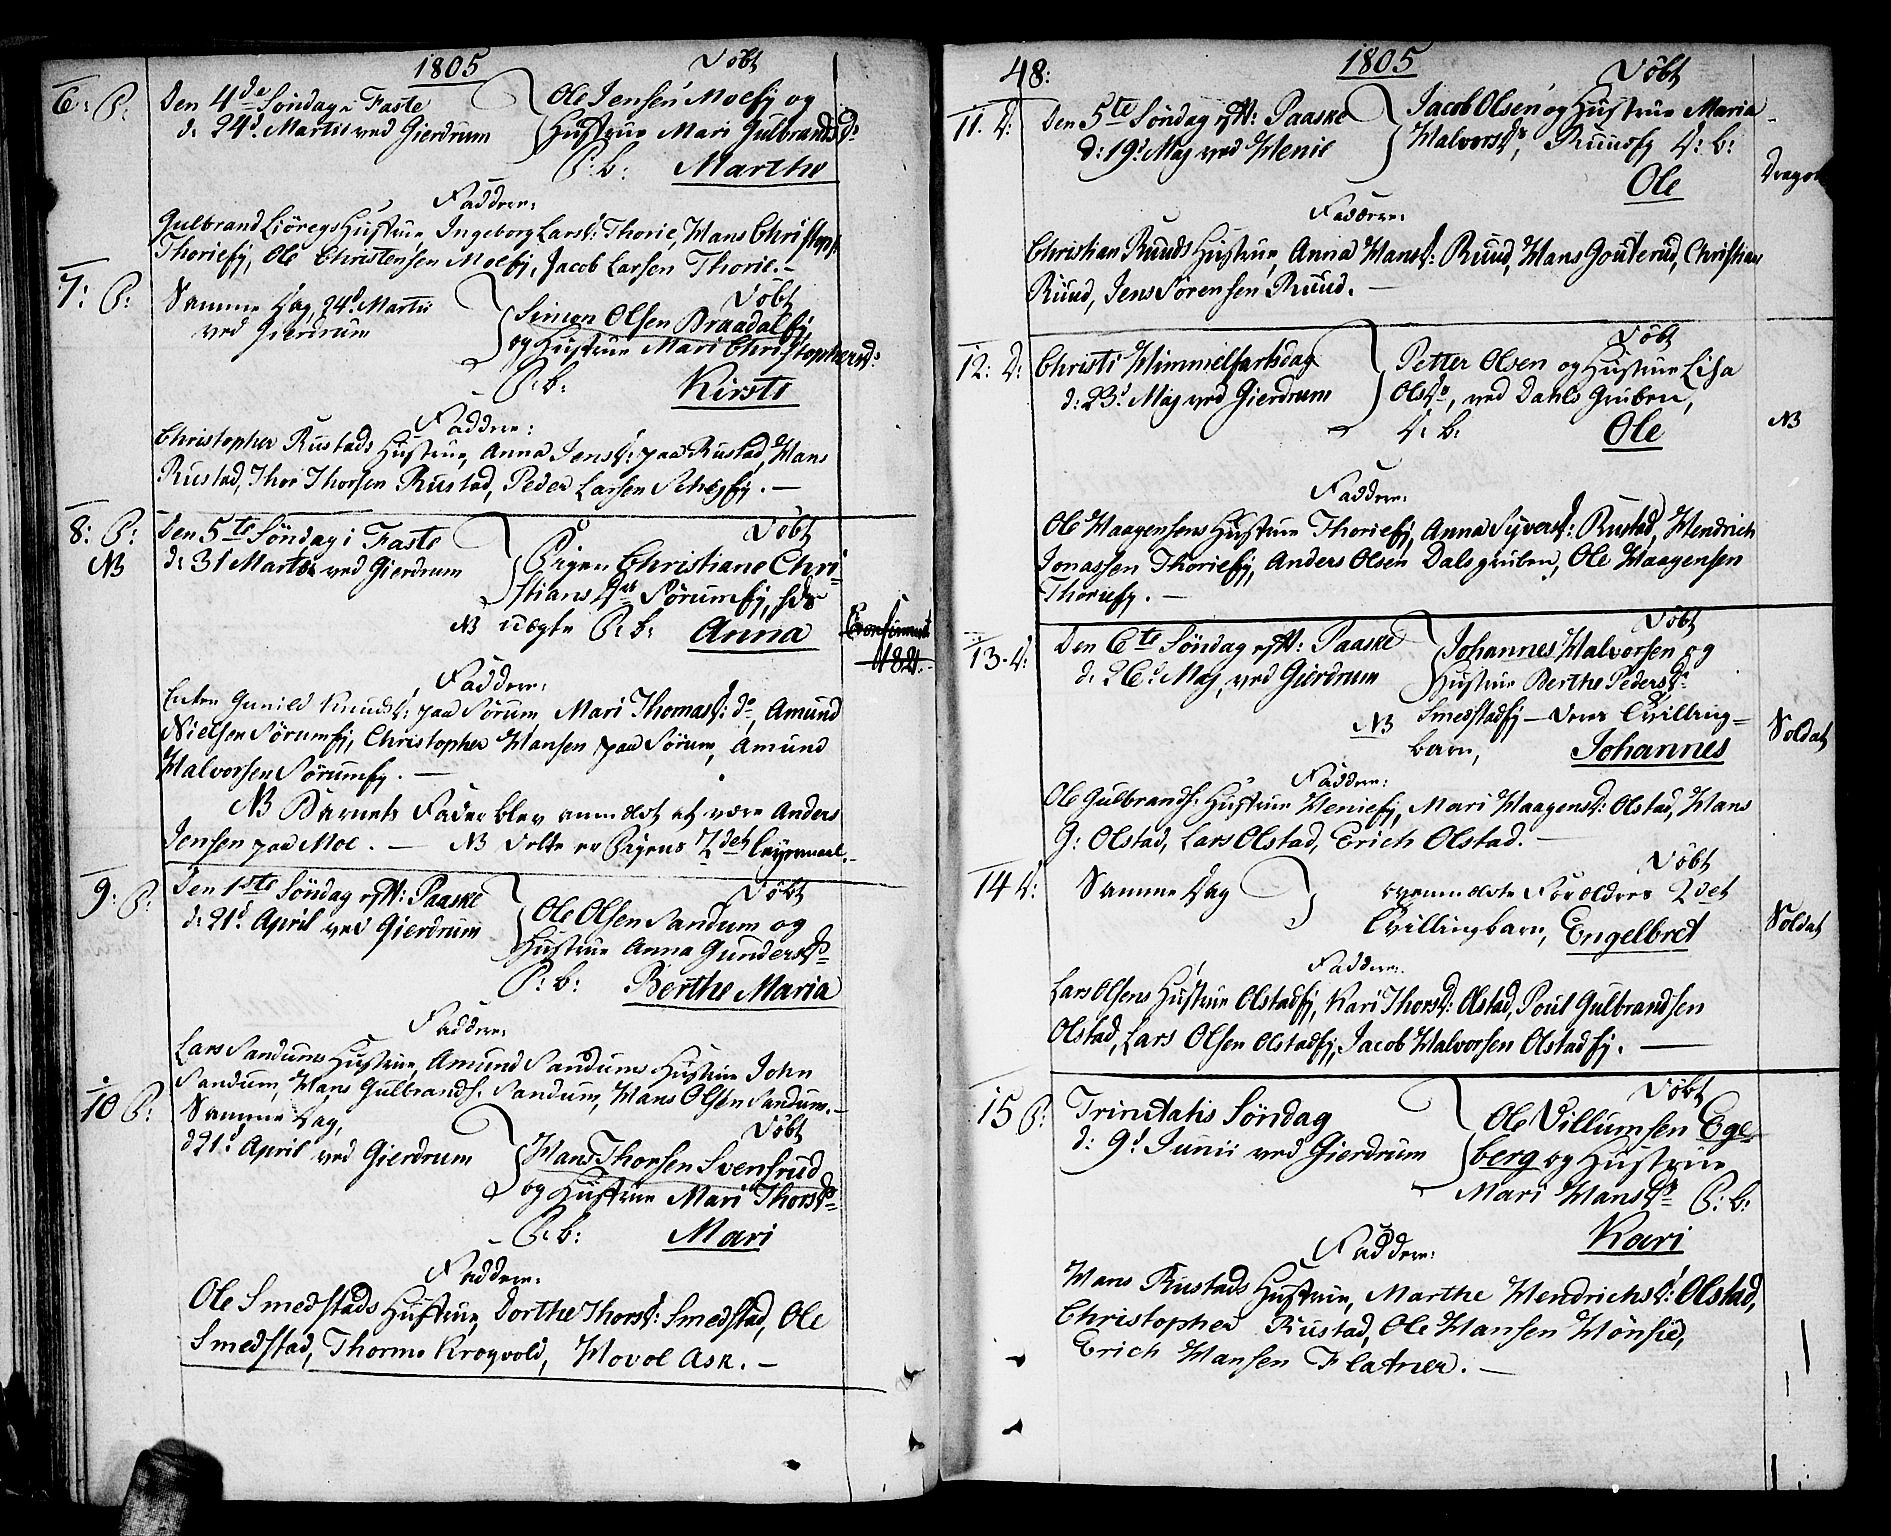 1805
Döbt
6: P: Den 4de Söndag i Faste
d: 24d Martii ved Gierdrum
Ole Jensen Moeej og
Hustrue Mari Gulbrandsd:
P: b: Marthe
Faddere:
Gulbrand Hustrue Ingeborg Larsd: Thorie, Hans Christoph.
Thorieej, Ole Christensen Moeej, Jacob Larsen Thorie. –
7: P: Samme Dag, 24d Martii
ved Gierdrum
Döbt
Simon Olsen Braadalej,
og Hustrue Mari Christophersd:
P: b: Kirsti
Faddere:
Christopher Rustads Hustrue, Anna Jensd: paa Rustad, Hans
Rustad, Thor Thorsen Rustad, Peder Larsen
8: P: Den 5te Söndag i Faste
NB d: 31 Martii ved Gierdrum
Döbt
Pigen Christiane Chri-
stians Dtr Sörumej,
NB uægte P: b: Anna
Confirmeret
182.
Faddere:
Enken Gunild Knudsd: paa Sörum, Mari Thomasd: do, Amund
Nielsen Sörumej, Christopher Hansen paa Sörum, Amund
Halvorsen Sörumej. –
NB Barnets Fader blev anmeldet at være Anders
Jensen paa Moe. – NB dette er Pigens 2det Leyermaal. –
9: P: Den 1ste Söndag eft: Paaske
d: 21d April ved Gierdrum
Döbt
Ole Olsen Sandum og
Hustrue Anna Gundersd:
P: b: Berthe Maria
Faddere:
Lars Sandums Hustrue, Amund Sandums Hustrue John
Sandum, Hans Gulbrands. Sandum, Hans Olsen Sandum. –
10 P: Samme Dag,
d 21d April ved Gierdrum
Döbt
Hans Thorsen Svensrud
og Hustrue Mari Thorsd:
P: b: Mari
Faddere:
Ole Smedstads Hustrue, Dorthe Thorsd: Smedstad, Ole
Smedstad, Thormo Krogvold, Hovol Ask. –
48:
1805
Döbt
11. D: Den 5te Söndag eft: Paaske
d: 19d Maj ved Henie
Jacob Olsen og Hustrue Maria
Halvorsd:, Ruudsej D: b:
Ole
Dragon
Faddere:
Christian Ruuds Hustrue, Anna Hansd: Ruud, Hans Gouterud, Christian
Ruud, Jens Sörensen Ruud. –
12: D: Christi Himmelfartsdag
d: 23d Maj ved Gierdrum
Döbt
Petter Olsen og Hustrue Lisa
Olsd:, ved Dahls Gruben,
D: b: Ole
NB
Faddere:
Ole Haagensens Hustrue Thorieej, Anna Syversd: Rustad, Hendrich
Jonassen Thorieej, Anders Olsen Dalsgruben, Ole Haagensen
Thorieej. –
13. D: Den 6te Söndag eft: Paaske
d: 26d Maj, ved Gierdrum
Döbt
Johannes Halvorsen og
Hustrue Berthe Pedersd:
NB Smedstadej – deres Tvilling-
barn, Johannes
Soldat
Faddere:
Ole Gulbrands. Hustrue Henieej, Mari Haagensd: Olstad, Hans
G: Olstad, Lars Olstad, Erich Olstad. –
14 D: Samme Dag
Döbt
ovenmeldte Forældres 2det
Tvillingbarn, Engelbret
Soldat
Faddere:
Lars Olsens Hustrue Olstadej, Kari Thorsd: Olstad, Poul Gulbrandsen
Olstad, Lars Olsen Olstadej, Jacob Halvorsen Olstadej. –
15 P: Trinitatis Söndag
d: 9d Junii ved Gierdrum
Döbt
Ole Villumsen Ege-
berg og Hustrue
Mari Hansd: P: b:
Kari
Faddere:
Hans Rustads Hustrue, Marthe Hendrichsd: Olstad,
Christopher Rustad, Ole Hansen Hönsie,
Erich Hansen Flatner. –